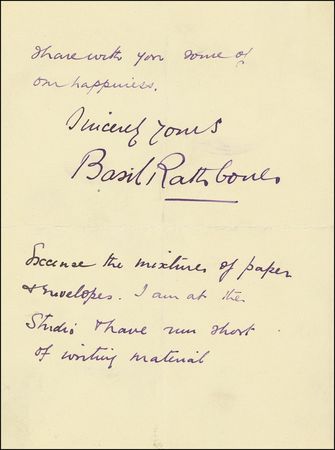 share with you some of
our happiness.
Sincerely Yours
Basil Rathbone.
Excuse the mixtures of paper
& envelopes. I am at the
Studio & have run short
of writing material